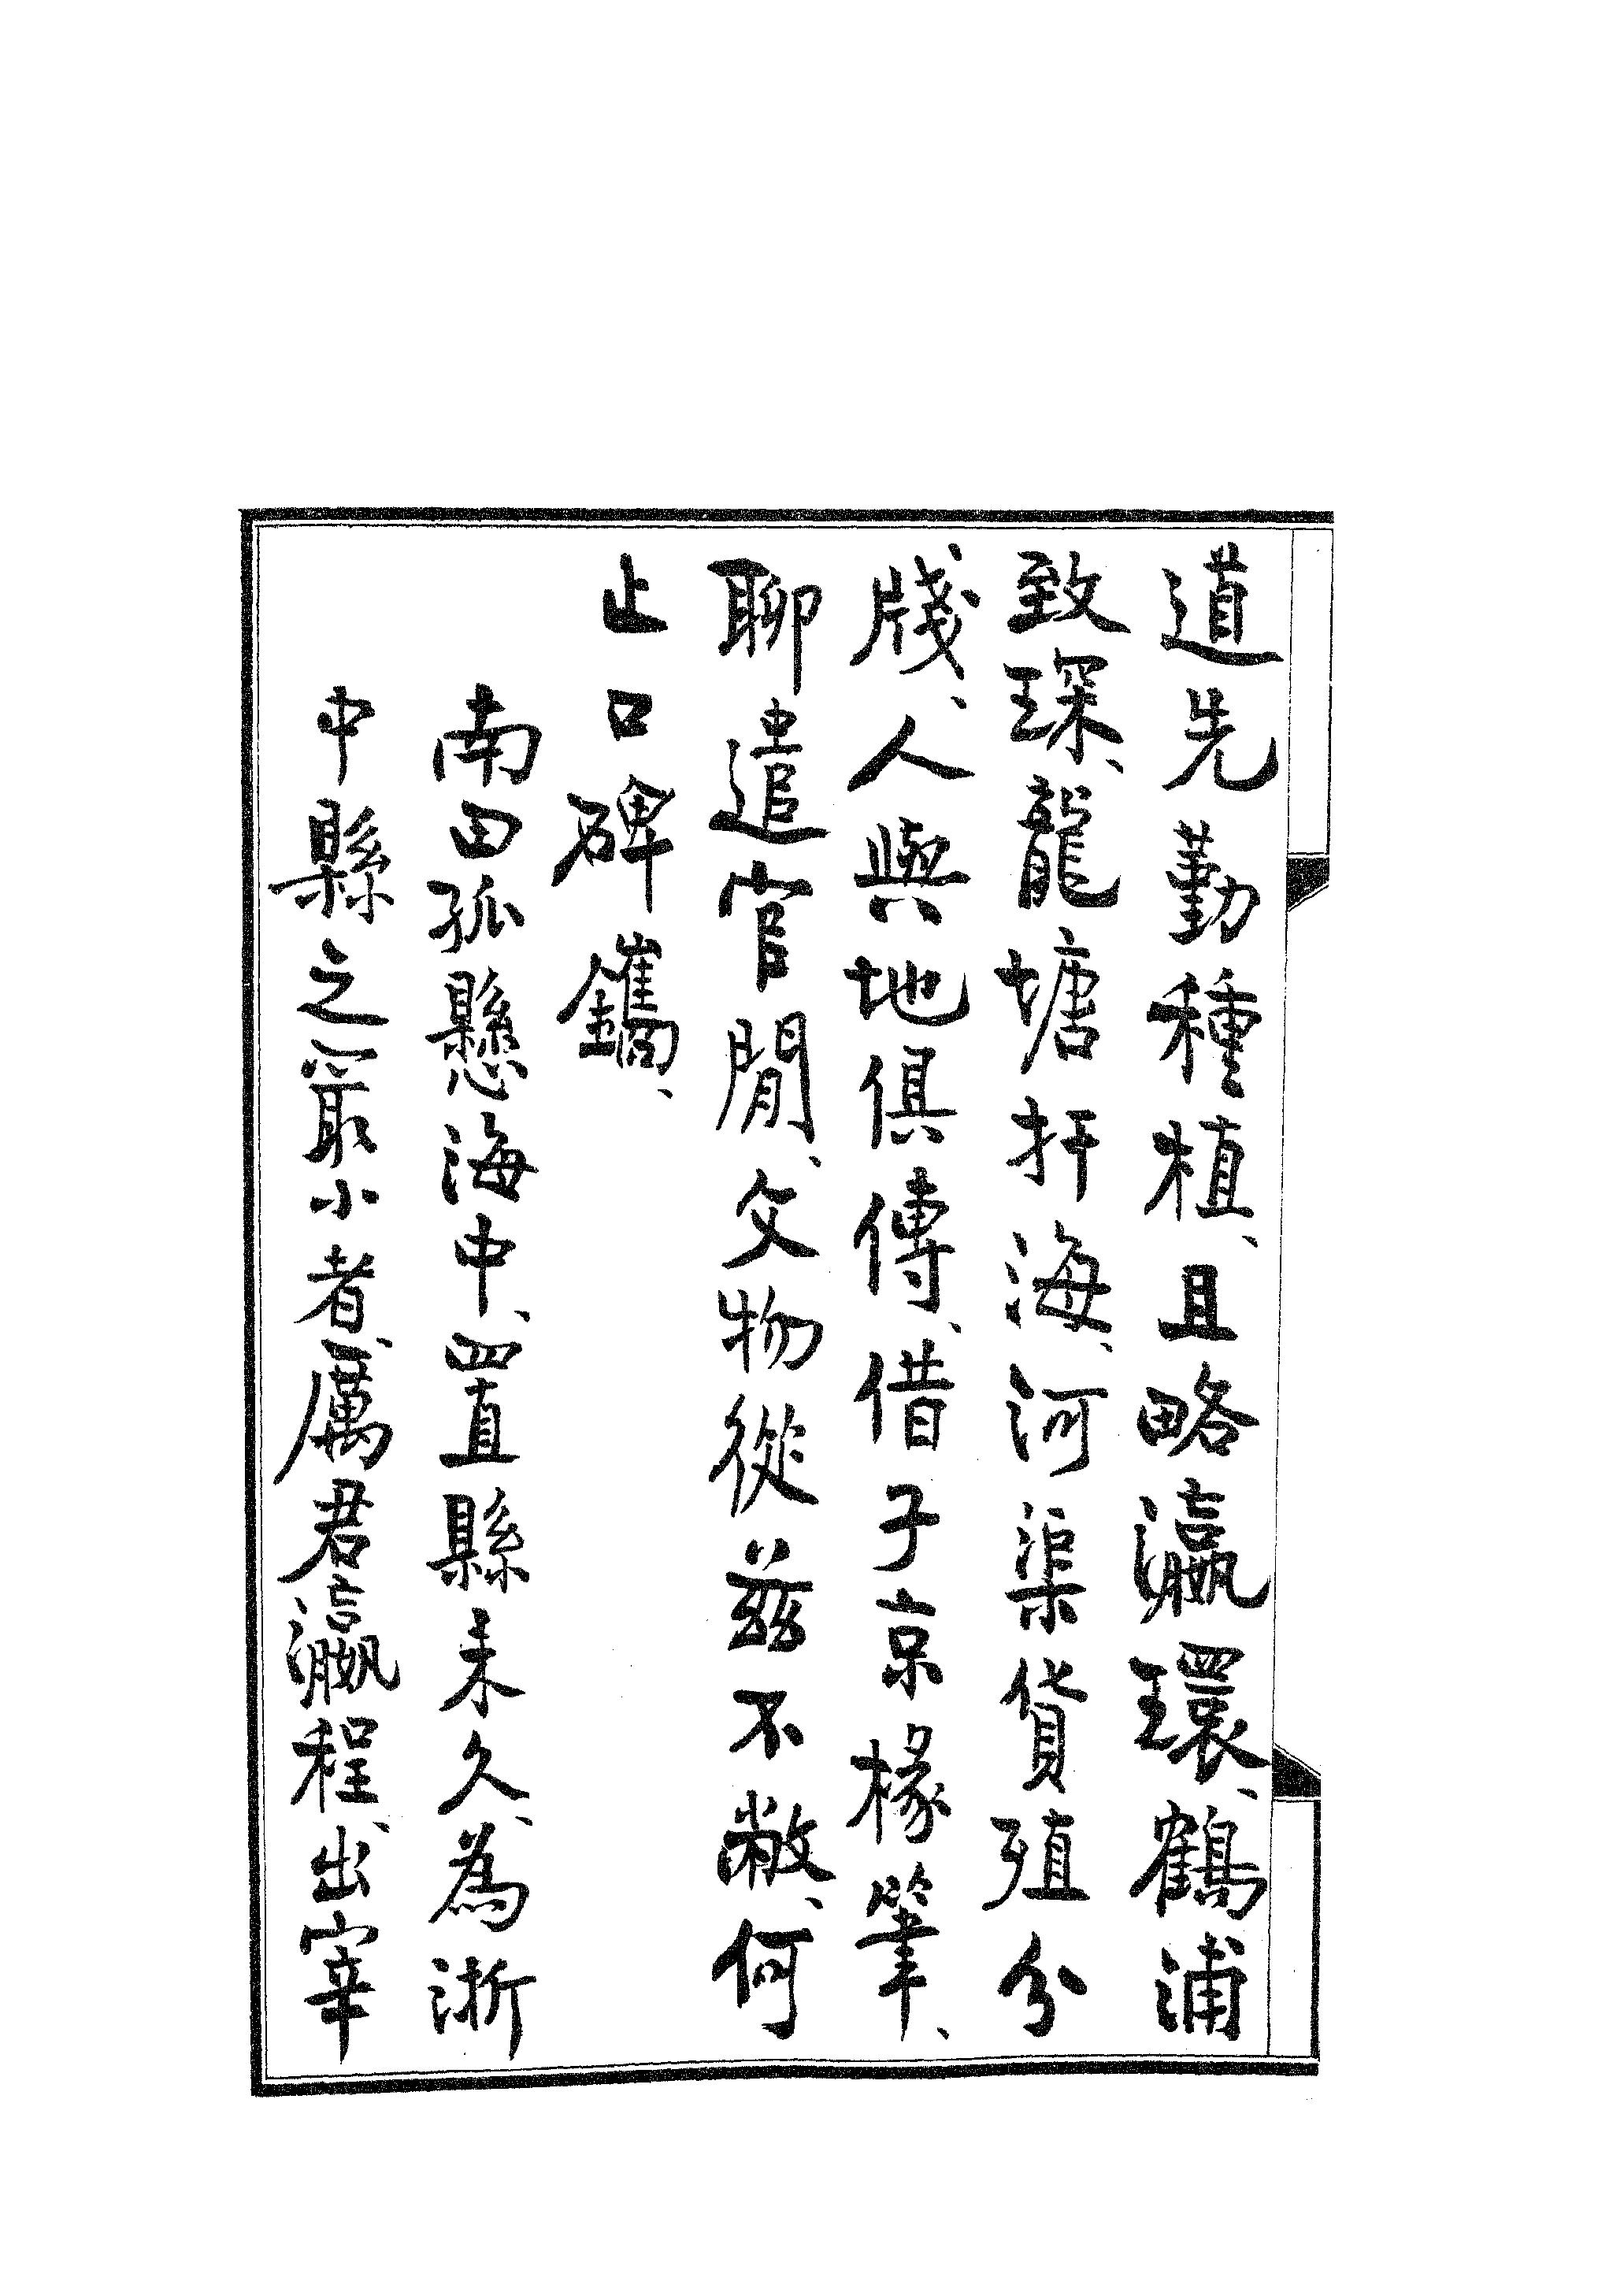 道先勤種植、且略瀛環、鶴浦
致琛、龍塘扞海、河渠貨殖分
牋、人與地俱傳、借子京椽筆、
聊遣官閒、文物從茲不敝、何
止口碑鐫、
南田孤懸海中、置縣未久、為浙
中縣之最小者、厲君瀛程、出宰